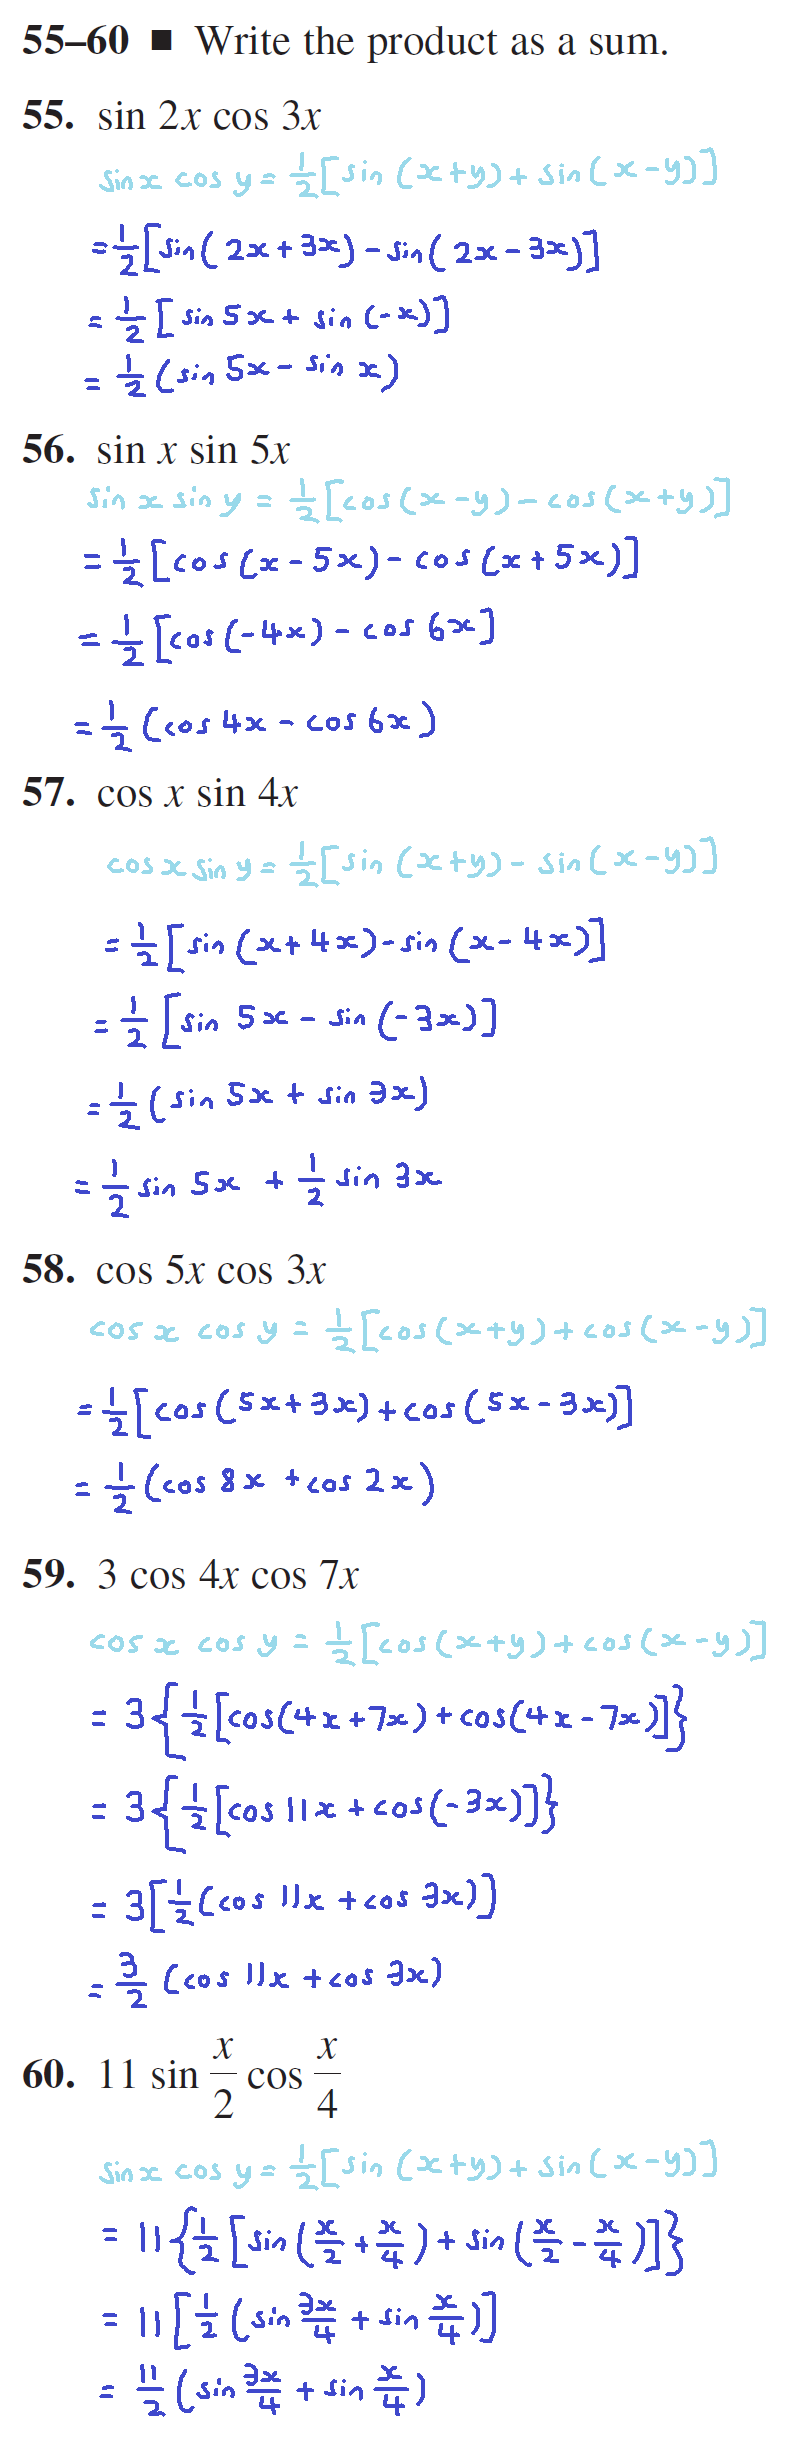 55–60 ■ Write the product as a sum.
55. sin 2x cos 3x
sin x cos y = 1/2 [sin (x+y) + sin(x-y)]
= 1/2 [sin(2x + 3x) - sin(2x - 3x)]
= 1/2 [sin 5x + sin (-x)]
= 1/2 (sin 5x - sin x)
56. sin x sin 5x
sin x sin y = 1/2 [cos(x-y) - cos(x+y)]
= 1/2 [cos (x - 5x) - cos (x + 5x)]
= 1/2 [cos (-4x) - cos 6x]
= 1/2 (cos 4x - cos 6x)
57. cos x sin 4x
cos x sin y = 1/2 [sin (x+y) - sin(x-y)]
= 1/2 [sin (x + 4x) - sin (x - 4x)]
= 1/2 [sin 5x - sin (-3x)]
= 1/2 (sin 5x + sin 3x)
= 1/2 sin 5x + 1/2 sin 3x
58. cos 5x cos 3x
cos x cos y = 1/2 [cos(x+y) + cos(x-y)]
= 1/2 [cos (5x + 3x) + cos (5x - 3x)]
= 1/2 (cos 8x + cos 2x)
59. 3 cos 4x cos 7x
cos x cos y = 1/2 [cos(x+y) + cos(x-y)]
= 3{1/2 [cos(4x + 7x) + cos(4x - 7x)]}
= 3{1/2 [cos 11x + cos(-3x)]}
= 3[1/2 (cos 11x + cos 3x)]
= 3/2 (cos 11x + cos 3x)
60. 11 sin x/2 cos x/4
sin x cos y = 1/2 [sin (x+y) + sin(x-y)]
= 11{1/2 [sin (x/2 + x/4) + sin (x/2 - x/4)]}
= 11[1/2 (sin 3x/4 + sin x/4)]
= 11/2 (sin 3x/4 + sin x/4)